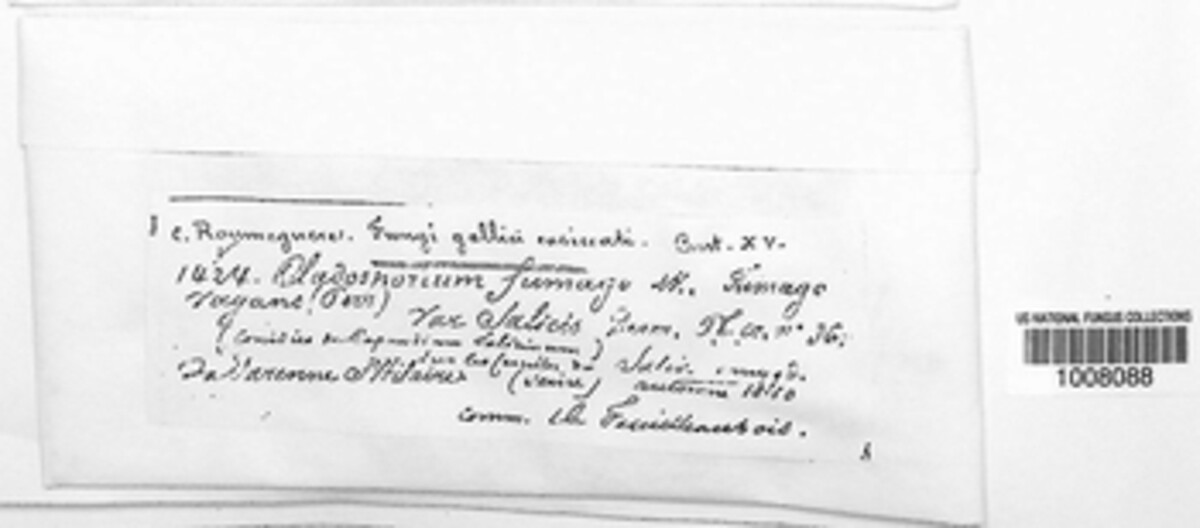 C. Roumeguere. Fungi gallici exsiccati. Cent. XV.
1424. Cladosporium fumago Lk. Fumago
vagans (Pers) var Salicis Desm. Pl. cr. n° 36.
(Conidies du Capnodium Salicinum)
sur les feuilles du Salix amygd.
La Varenne St Hilaire (Seine) automne 1880
comm. de Feuilleaubois.
US NATIONAL FUNGUS COLLECTIONS
1008088